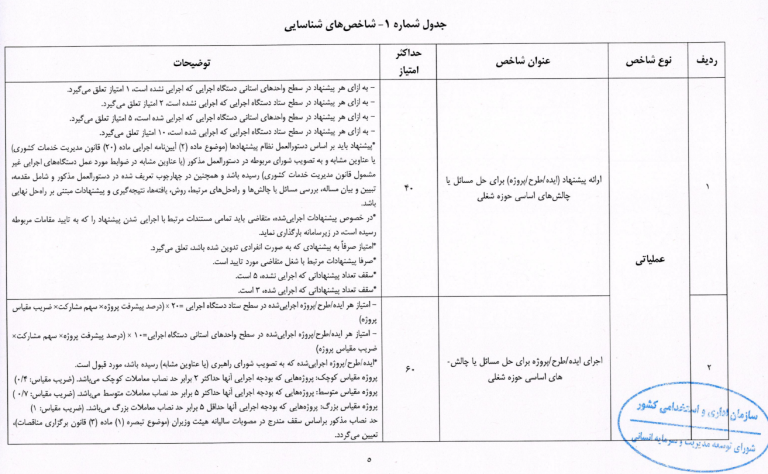 جدول شماره ۱- شاخص‌های شناسایی
ردیف
نوع شاخص
عنوان شاخص
حداکثر
امتیاز
توضیحات
۱
عملیاتی
ارائه پیشنهاد (ایده/طرح/پروژه) برای حل مسائل یا
چالش‌های اساسی حوزه شغلی
۴۰
- به ازای هر پیشنهاد در سطح واحدهای استانی دستگاه اجرایی که اجرایی نشده است، ۱ امتیاز تعلق می‌گیرد.
- به ازای هر پیشنهاد در سطح ستاد دستگاه اجرایی که اجرایی نشده است، ۲ امتیاز تعلق می‌گیرد.
- به ازای هر پیشنهاد در سطح واحدهای استانی دستگاه اجرایی که اجرایی شده است، ۵ امتیاز تعلق می‌گیرد.
- به ازای هر پیشنهاد در سطح ستاد دستگاه اجرایی که اجرایی شده است، ۱۰ امتیاز تعلق می‌گیرد.
*پیشنهاد باید بر اساس دستورالعمل نظام پیشنهادها (موضوع ماده (۲) آیین‌نامه اجرایی ماده (۲۰) قانون مدیریت خدمات کشوری)
یا عناوین مشابه و به تصویب شورای مربوطه در دستورالعمل مذکور (یا عناوین مشابه در ضوابط مورد عمل دستگاه‌های اجرایی غیر
مشمول قانون مدیریت خدمات کشوری) رسیده باشد و همچنین در چهارچوب تعریف شده در دستورالعمل مذکور و شامل مقدمه،
تبیین و بیان مساله، بررسی مسائل یا چالش‌ها و راه‌حل‌های مرتبط، روش، یافته‌ها، نتیجه‌گیری و پیشنهادات مبتنی بر راه‌حل نهایی
باشد.
*در خصوص پیشنهادات اجرایی‌شده، متقاضی باید تمامی مستندات مرتبط با اجرایی شدن پیشنهاد را که به تایید مقامات مربوطه
رسیده است، در زیرسامانه بارگذاری نماید.
*امتیاز صرفاً به پیشنهادی که به صورت انفرادی تدوین شده باشد، تعلق می‌گیرد.
*صرفا پیشنهادات مرتبط با شغل متقاضی مورد تایید است.
*سقف تعداد پیشنهاداتی که اجرایی نشده، ۵ است.
*سقف تعداد پیشنهاداتی که اجرایی شده، ۳ است.
۲
اجرای ایده/طرح/پروژه برای حل مسائل یا چالش-
های اساسی حوزه شغلی
۶۰
- امتیاز هر ایده/طرح/پروژه اجرایی‌شده در سطح ستاد دستگاه اجرایی =۲۰ × (درصد پیشرفت پروژه× سهم مشارکت× ضریب مقیاس
پروژه)
- امتیاز هر ایده/طرح/پروژه اجرایی‌شده در سطح واحدهای استانی دستگاه اجرایی=۱۰ × (درصد پیشرفت پروژه× سهم مشارکت×
ضریب مقیاس پروژه)
*ایده/طرح/پروژه اجرایی‌شده که به تصویب شورای راهبری (یا عناوین مشابه) رسیده باشد، مورد قبول است.
پروژه مقیاس کوچک: پروژه‌هایی که بودجه اجرایی آنها حداکثر ۲ برابر حد نصاب معاملات کوچک می‌باشد. (ضریب مقیاس: ۰/۴)
پروژه مقیاس متوسط: پروژه‌هایی که بودجه اجرایی آنها حداکثر ۵ برابر حد نصاب معاملات متوسط می‌باشد. (ضریب مقیاس: ۰/۷)
پروژه مقیاس بزرگ: پروژه‌هایی که بودجه اجرایی آنها حداقل ۵ برابر حد نصاب معاملات بزرگ می‌باشد. (ضریب مقیاس: ۱)
حد نصاب مذکور براساس سقف مندرج در مصوبات سالیانه هیئت وزیران (موضوع تبصره (۱) ماده (۳) قانون برگزاری مناقصات)،
تعیین می‌گردد.
سازمان اداری و استخدامی کشور
شورای توسعه مدیریت و سرمایه انسانی
۵